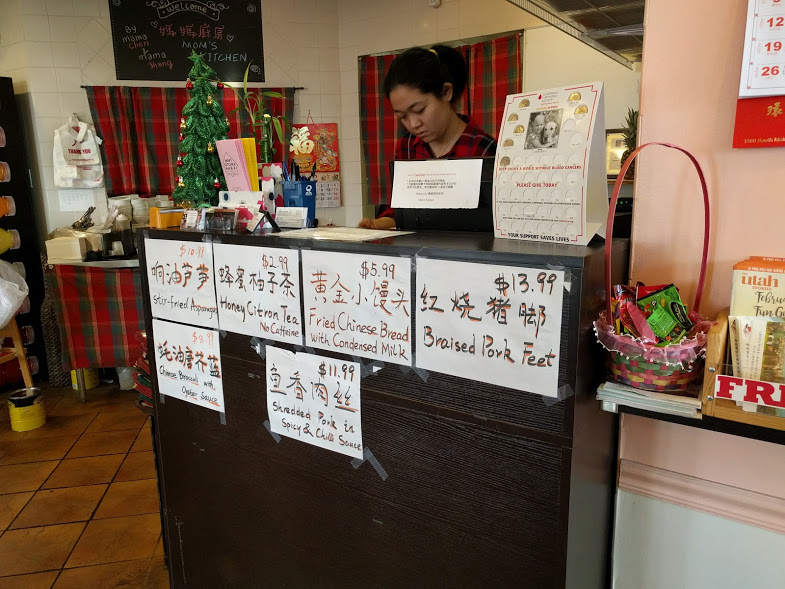 Welcome
By
mama
Chen &
mama
Shang
媽媽廚房
MOM'S
KITCHEN
THANK YOU
福
PLEASE GIVE TODAY
YOUR SUPPORT SAVES LIVES
5
12
19
26
$10.99
响油芦笋
Stir-fried Asparagus
$2.99
蜂蜜柚子茶
Honey Citron Tea
No Caffeine
$5.99
黄金小馒头
Fried Chinese Bread
with Condensed Milk
$13.99
红烧猪脚
Braised Pork Feet
蚝油唐芥蓝
Chinese Broccoli with
Oyster Sauce
$11.99
鱼香肉丝
Shredded Pork in
Spicy & Chilli Sauce
utah
STORIES
February
Fun G
FRE